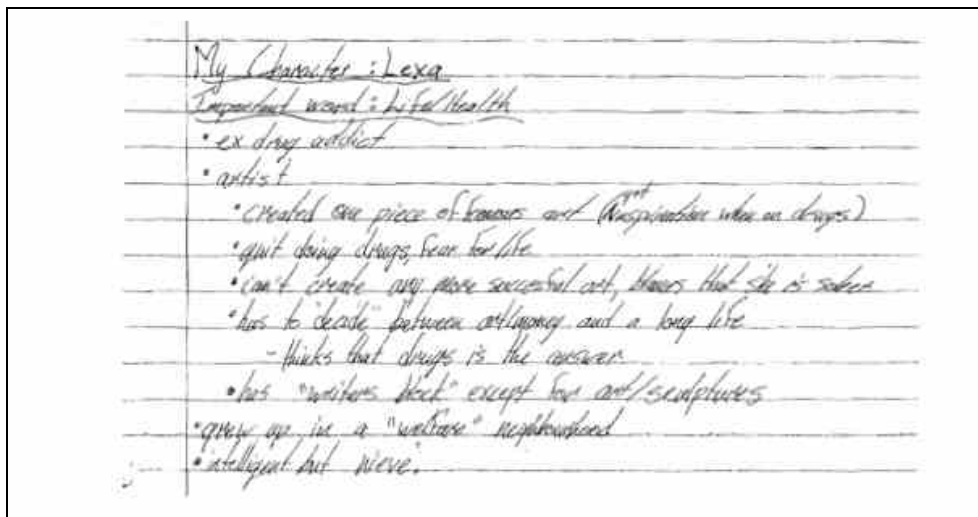 My Character : Lexa
Important word : Life/Health
• ex drug addict
• artist
• created one piece of famous art (got inspiration when on drugs)
• quit doing drugs, fear for life
• can't create any more succesful art, blames that she is sober
• has to "decide" between art/money and a long life
- thinks that drugs is the answer
• has "writers block" except for art/sculptures
• grew up in a "welfare" neighbourhood
• intelligent but nieve.